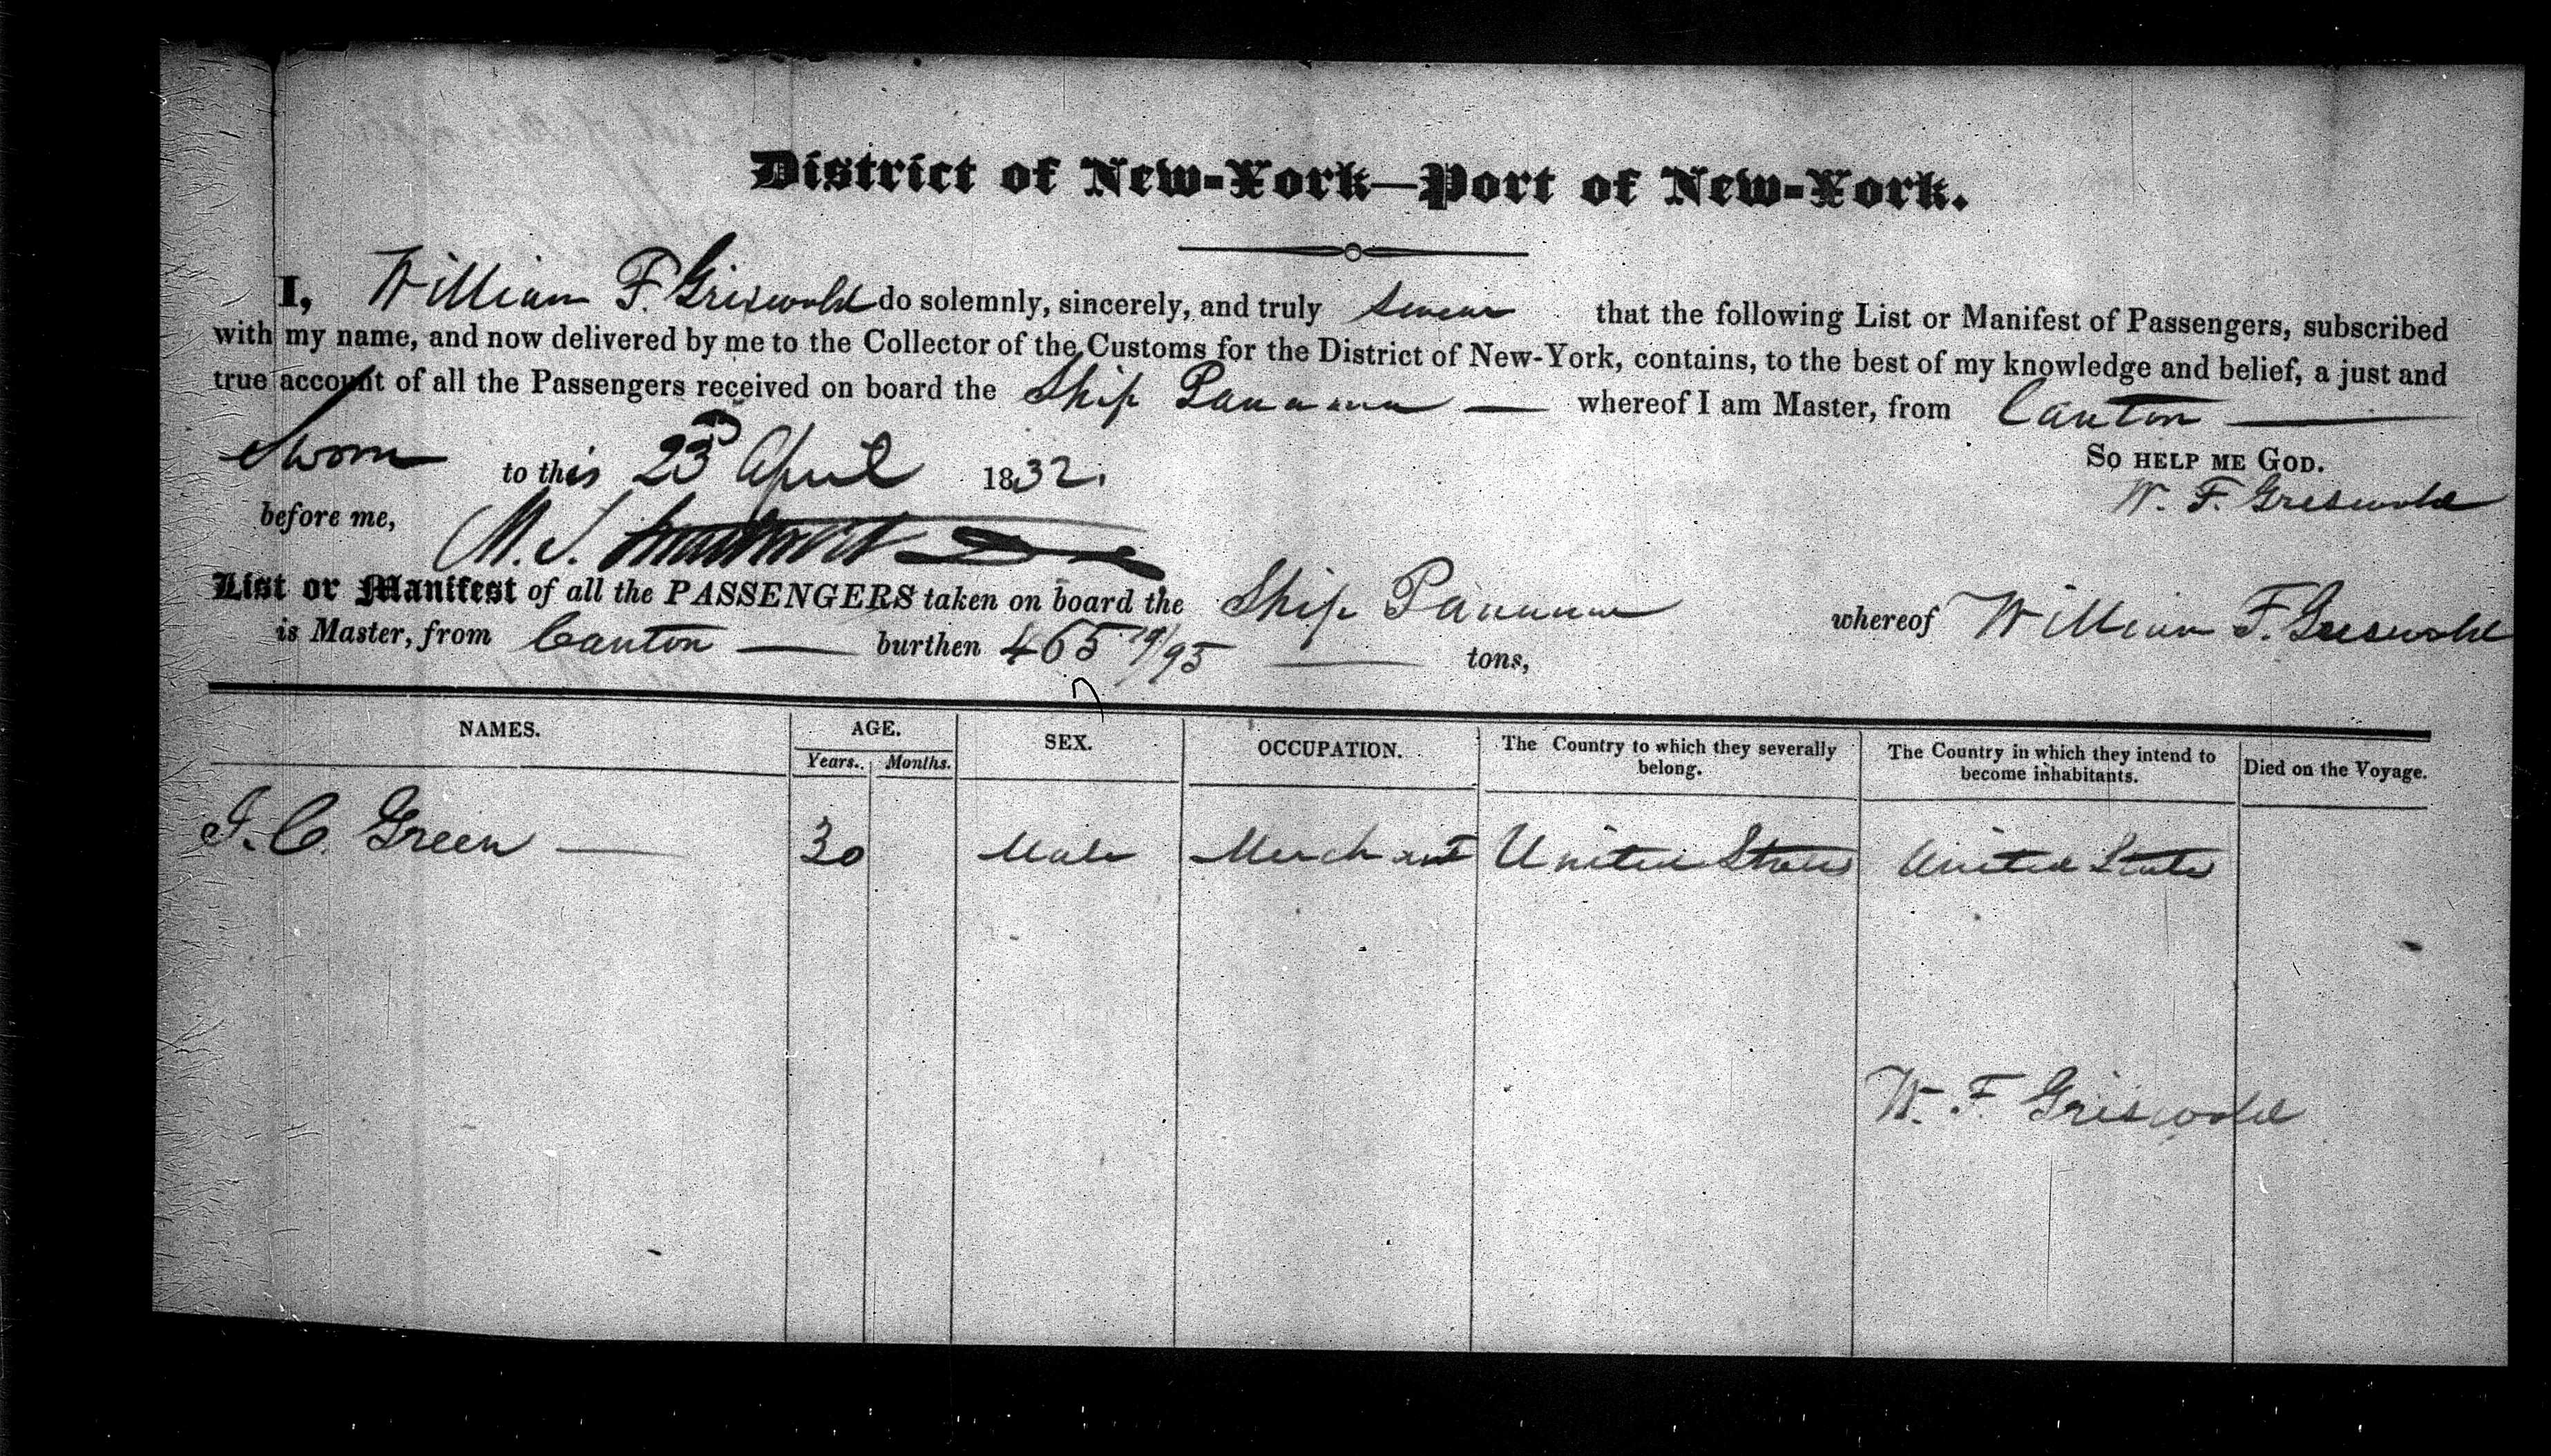 District of New-York—Port of New-York.
I, William F. Griswold do solemnly, sincerely, and truly swear that the following List or Manifest of Passengers, subscribed
with my name, and now delivered by me to the Collector of the Customs for the District of New-York, contains, to the best of my knowledge and belief, a just and
true account of all the Passengers received on board the Ship Panama — whereof I am Master, from Canton —
Sworn to this 23d April 1832. So help me God.
before me, M. S. W. F. Griswold
List or Manifest of all the PASSENGERS taken on board the Ship Panama whereof William F. Griswold
is Master, from Canton — burthen 465 19/95 — tons,
NAMES. AGE. SEX. OCCUPATION. The Country to which they severally belong. The Country in which they intend to become inhabitants. Died on the Voyage.
Years. Months.
J. C. Green — 30 Male Merchant United States United States
W. F. Griswold